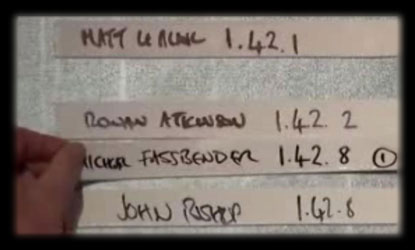 MATT LE BLANC 1.42.1
ROWAN ATKINSON 1.42.2
MICHAEL FASSBENDER 1.42.8 ①
JOHN BISHOP 1.42.8